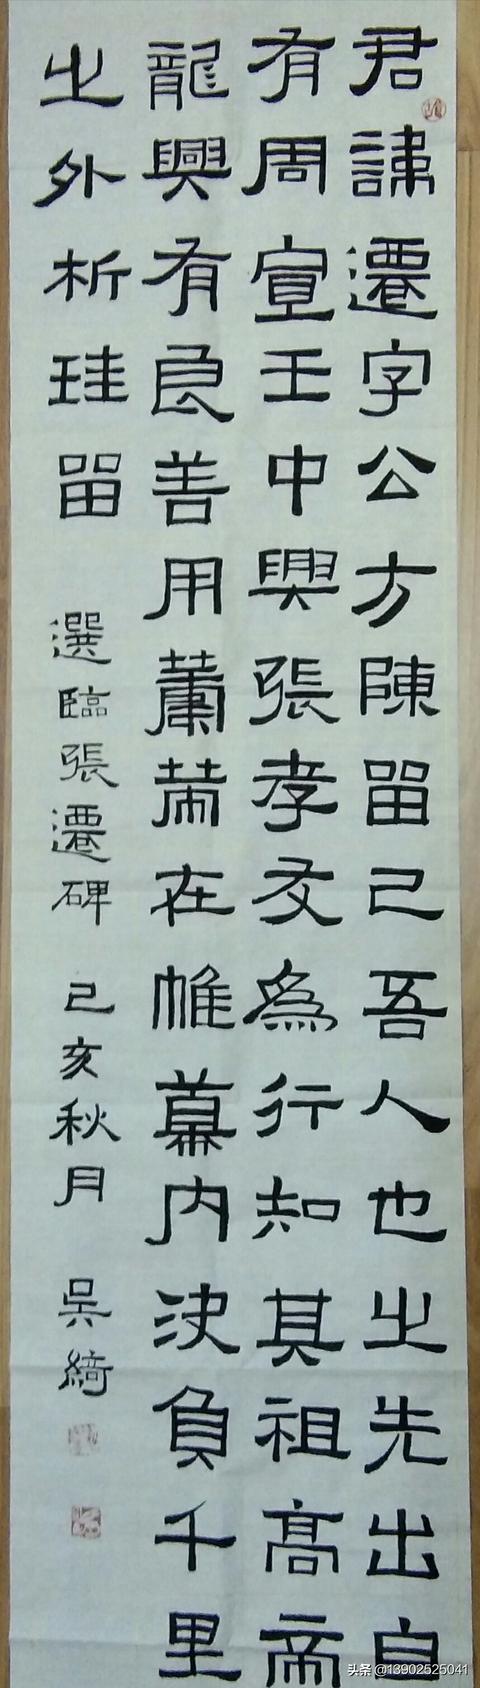 君諱遷字公方陳留己吾人也之先出自
有周宣王中興張孝友為行知其祖高帝
龍興有良善用籌策在帷幕內決負千里
之外析珪留
選臨張遷碑 己亥秋月 吳綺
头条 @13902525041